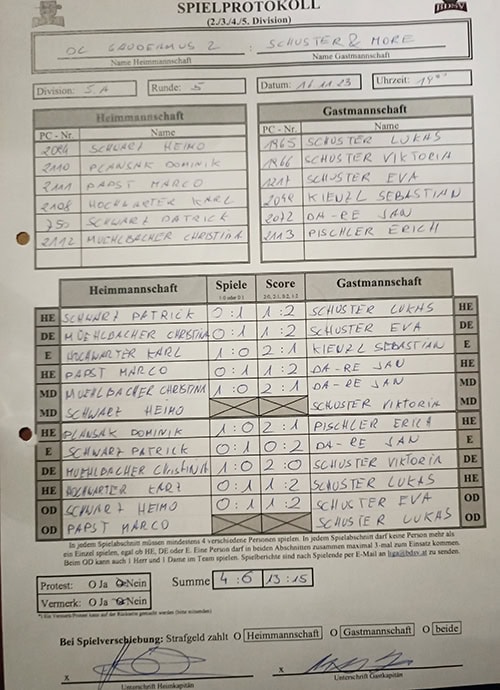 SPIELPROTOKOLL
(2./3./4./5. Division)
DC GAUDERMUS 2 : SCHUSTER & MORE
Name Heimmannschaft Name Gastmannschaft
Division: 5.A Runde: 5 Datum: 16.11.23 Uhrzeit:
Heimmannschaft Gastmannschaft
PC - Nr. Name PC - Nr. Name
2094 SCHWARZ HEIMO 1965 SCHUSTER LUKAS
2110 PLANSAK DOMINIK 1966 SCHUSTER VIKTORIA
2111 PAPST MARCO 1217 SCHUSTER EVA
2108 HOCHWARTER KARL 2098 KIENZL SEBASTIAN
750 SCHWARZ PATRICK 2072 DA-RE JAN
2112 MUEHLBACHER CHRISTINA 2113 PISCHLER ERICH
Heimmannschaft Spiele Score Gastmannschaft
1:0 oder 0:1 2:0, 2:1, 0:2, 1:2
HE SCHWARZ PATRICK 0:1 1:2 SCHUSTER LUKAS HE
DE MUEHLBACHER CHRISTINA 0:1 1:2 SCHUSTER EVA DE
E HOCHWARTER KARL 1:0 2:1 KIENZL SEBASTIAN E
HE PAPST MARCO 0:1 1:2 DA-RE JAN HE
MD MUEHLBACHER CHRISTINA 1:0 2:1 DA-RE JAN MD
MD SCHWARZ HEIMO SCHUSTER VIKTORIA MD
HE PLANSAK DOMINIK 1:0 2:1 PISCHLER ERICH HE
E SCHWARZ PATRICK 0:1 0:2 DA-RE JAN E
DE MUEHLBACHER CHRISTINA 1:0 2:0 SCHUSTER VIKTORIA DE
HE HOCHWARTER KARL 0:1 1:2 SCHUSTER LUKAS HE
OD SCHWARZ HEIMO 0:1 1:2 SCHUSTER EVA OD
OD PAPST MARCO SCHUSTER LUKAS OD
In jedem Spielabschnitt müssen mindestens 4 verschiedene Personen spielen. In jedem Spielabschnitt darf keine Person mehr als
ein Einzel spielen, egal ob HE, DE oder E. Eine Person darf in beiden Abschnitten zusammen maximal 3-mal zum Einsatz kommen.
Beim OD kann auch 1 Herr und 1 Dame im Team spielen. Spielberichte sind nach Spielende per E-Mail an liga@bdsv.at zu senden.
Protest: O Ja O Nein Summe 4:6 13:15
Vermerk: O Ja O Nein
Bei Spielverschiebung: Strafgeld zahlt O Heimmannschaft O Gastmannschaft O beide
x x
Unterschrift Heimkapitän Unterschrift Gastkapitän